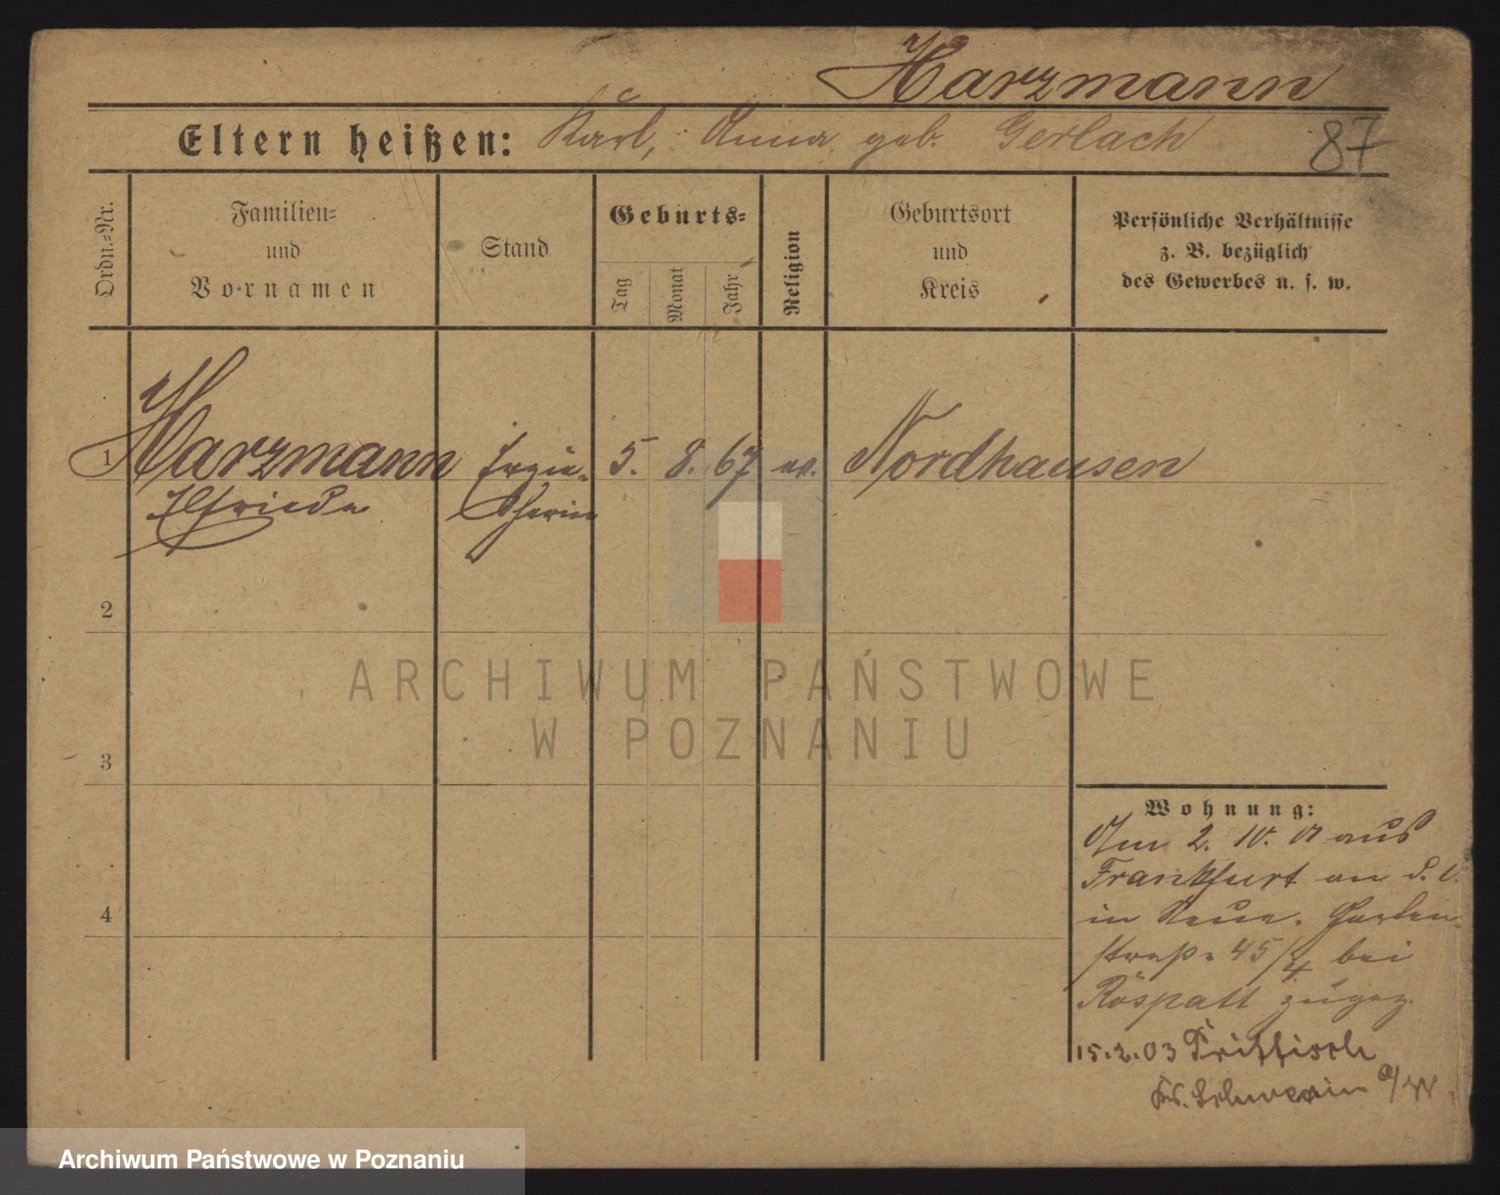 Harzmann
Eltern heißen: Karl, Anna geb. Gerlach
87
Ordn.-Nr.
Familien-
und
Vornamen
Stand
Geburts-
Tag
Monat
Jahr
Religion
Geburtsort
und
Kreis
Persönliche Verhältnisse
z. B. bezüglich
des Gewerbes u. s. w.
1 Harzmann Erzie- 5. 8. 67 ev. Nordhausen
Elfriede herin
2
3
4
Wohnung:
Am 2. 10. 01 aus
Frankfurt an d. O.
in Neue Garten-
straße 45/4 bei
Röspatt zugez.
15.2.03 Prittisch
Kr. Schwerin a/W
ARCHIWUM PAŃSTWOWE
W POZNANIU
Archiwum Państwowe w Poznaniu